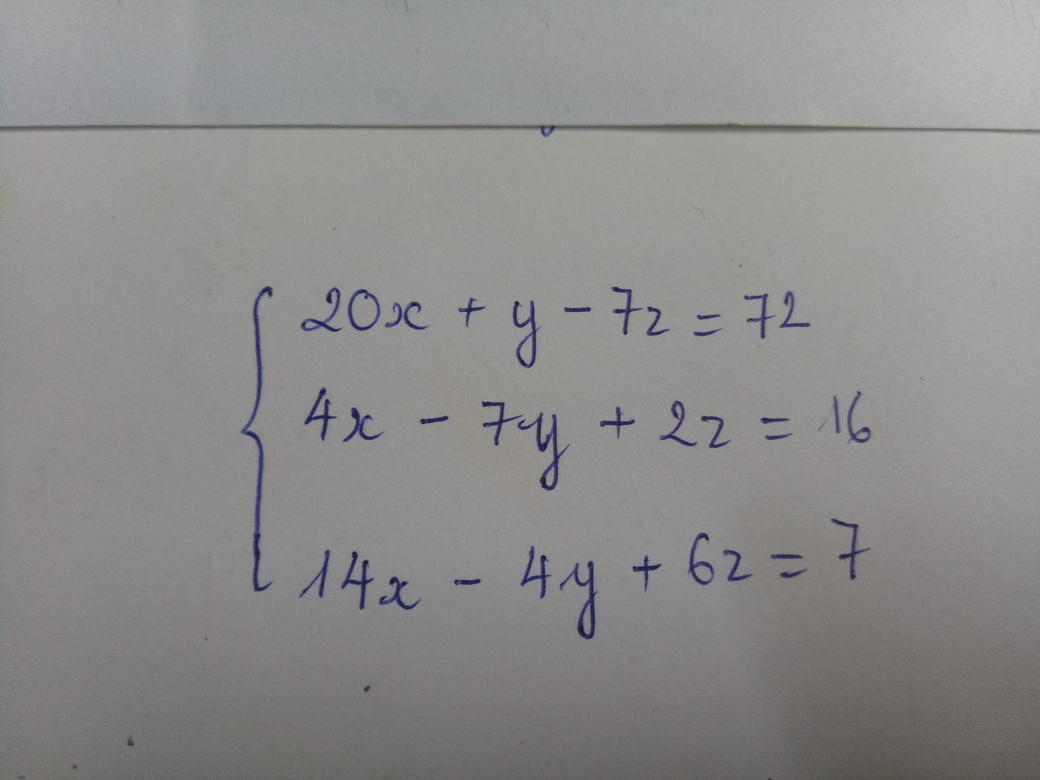 20x + y - 7z = 72
4x - 7y + 2z = 16
14x - 4y + 6z = 7